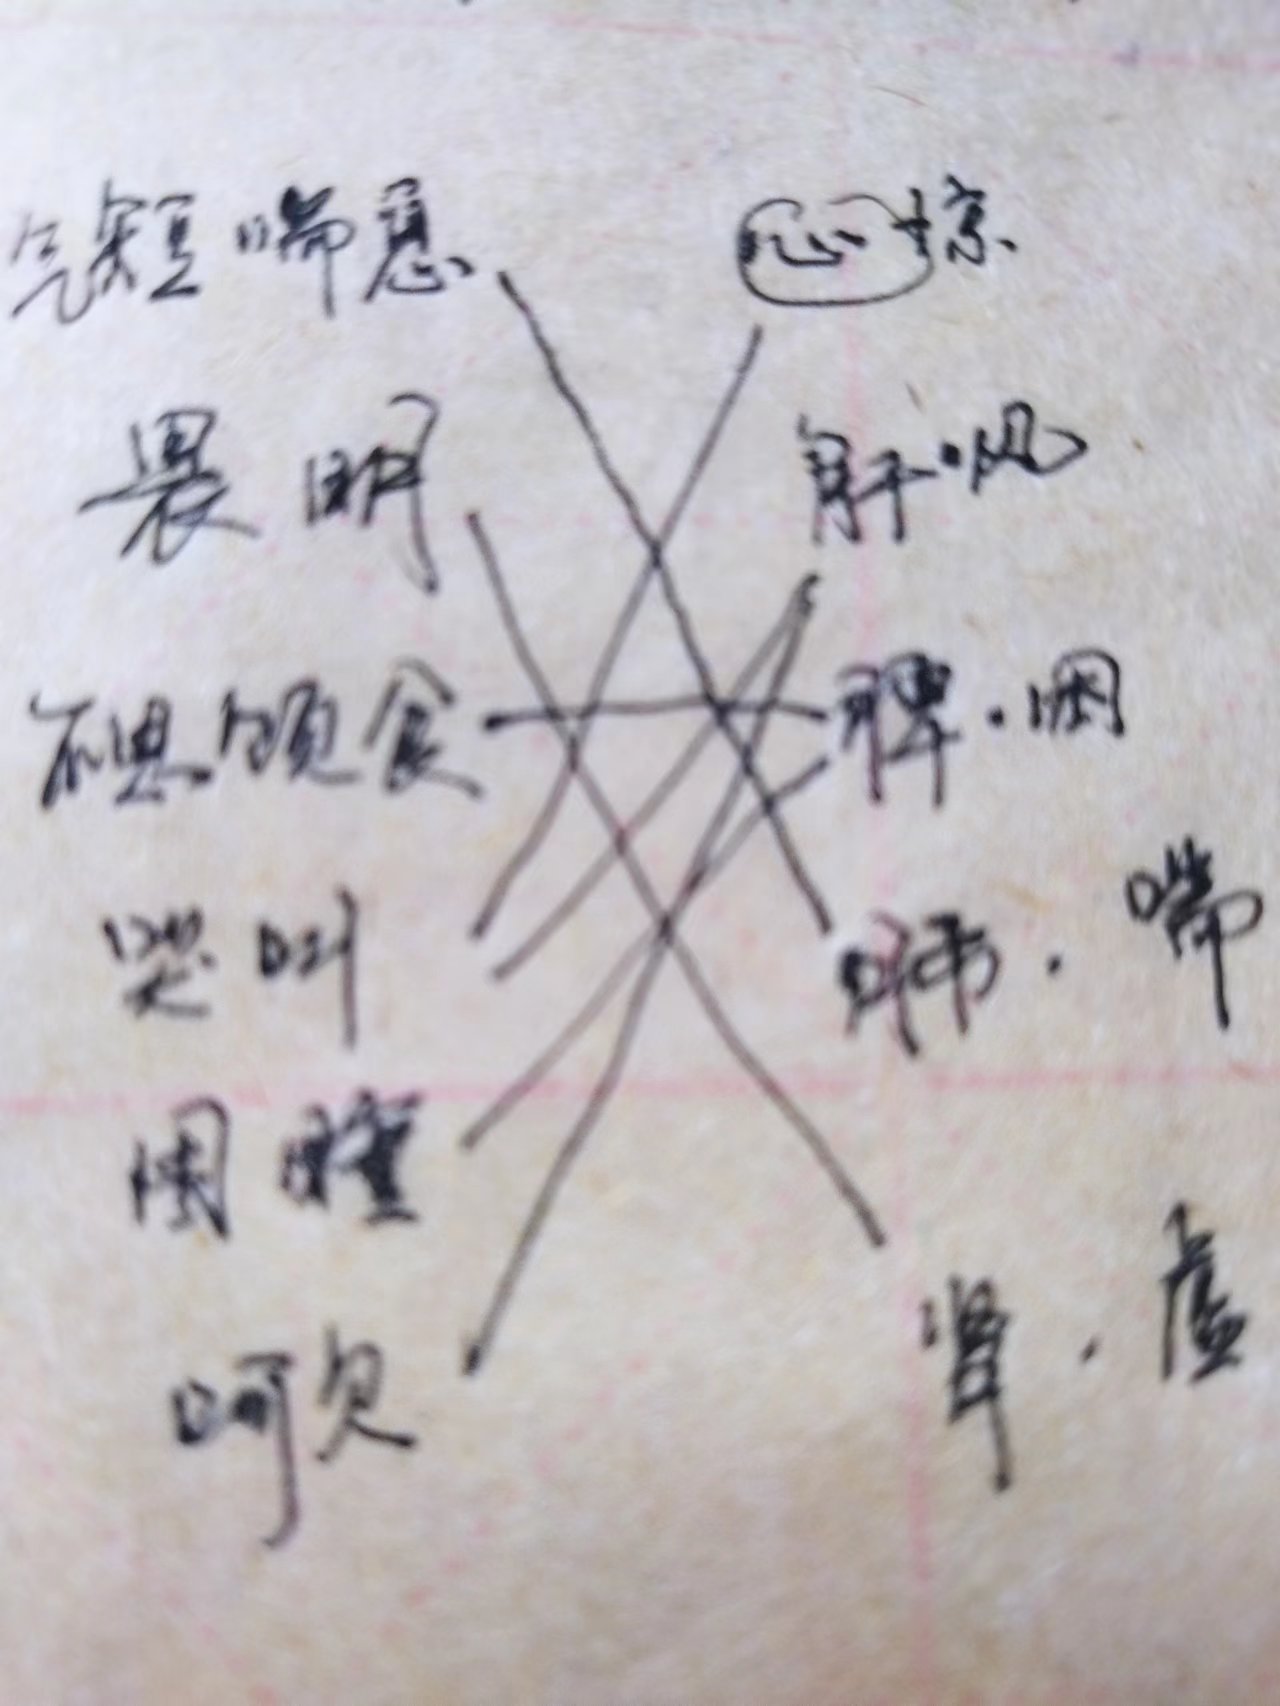 气短喘急 心惊
畏明 肝·风
不思饮食 脾·困
哭叫 肺·喘
困睡 肾·虚
呵欠